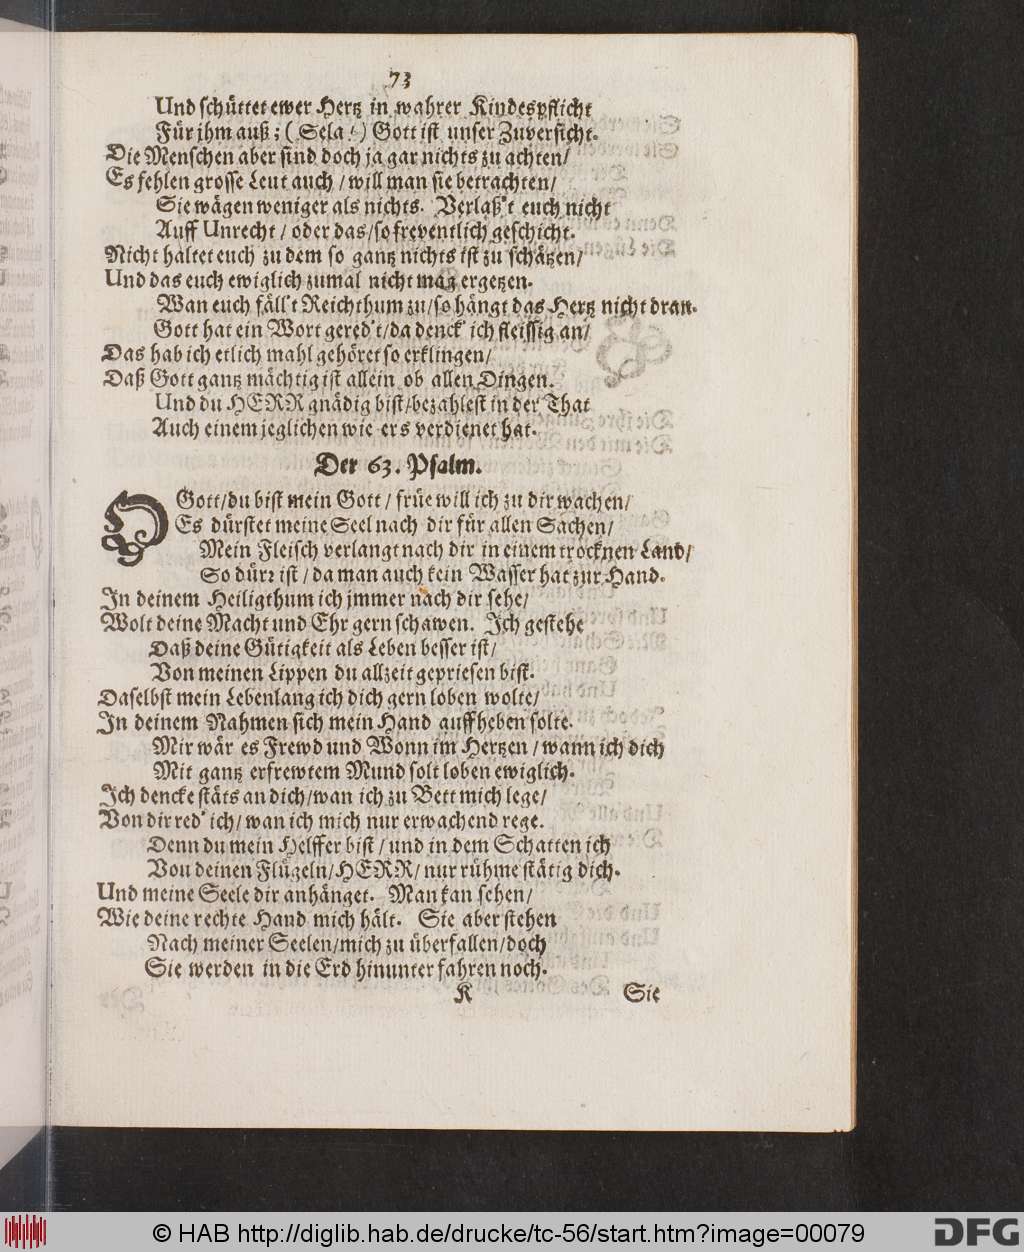 73
Und schüttet ewer Hertz in wahrer Kindespflicht
Für jhm auß; (Sela!) Gott ist unser Zuversicht.
Die Menschen aber sind doch ja gar nichts zu achten/
Es fehlen grosse Leut auch / will man sie betrachten/
Sie wägen weniger als nichts. Verlaß't euch nicht
Auff Unrecht / oder das/so freventlich geschicht.
Nicht haltet euch zu dem so gantz nichts ist zu schätzen/
Und das euch ewiglich zumal nicht mag ergetzen.
Wan euch fäll't Reichthum zu/so hängt das Hertz nicht dran.
Gott hat ein Wort gered't/da denck' ich fleissig an/
Das hab ich etlich mahl gehöret so erklingen/
Daß Gott gantz mächtig ist allein ob allen Dingen.
Und du HERR gnädig bist/bezahlest in der That
Auch einem jeglichen wie ers verdienet hat.
Der 63. Psalm.
O Gott/du bist mein Gott / früe will ich zu dir wachen/
Es dürstet meine Seel nach dir für allen Sachen/
Mein Fleisch verlangt nach dir in einem trocknen Land/
So dürꝛ ist / da man auch kein Wasser hat zur Hand.
In deinem Heiligthum ich jmmer nach dir sehe/
Wolt deine Macht und Ehr gern schawen. Ich gestehe
Daß deine Gütigkeit als Leben besser ist/
Von meinen Lippen du allzeit gepriesen bist.
Daselbst mein Lebenlang ich dich gern loben wolte/
In deinem Nahmen sich mein Hand auffheben solte.
Mir wär es Frewd und Wonn im Hertzen / wann ich dich
Mit gantz erfrewtem Mund solt loben ewiglich.
Ich dencke stäts an dich/wan ich zu Bett mich lege/
Von dir red' ich/ wan ich mich nur erwachend rege.
Denn du mein Helffer bist / und in dem Schatten ich
Von deinen Flügeln/HERR/ nur rühme stätig dich.
Und meine Seele dir anhänget. Man kan sehen/
Wie deine rechte Hand mich hält. Sie aber stehen
Nach meiner Seelen/mich zu überfallen/doch
Sie werden in die Erd hinunter fahren noch.
K Sie
© HAB http://diglib.hab.de/drucke/tc-56/start.htm?image=00079 DFG